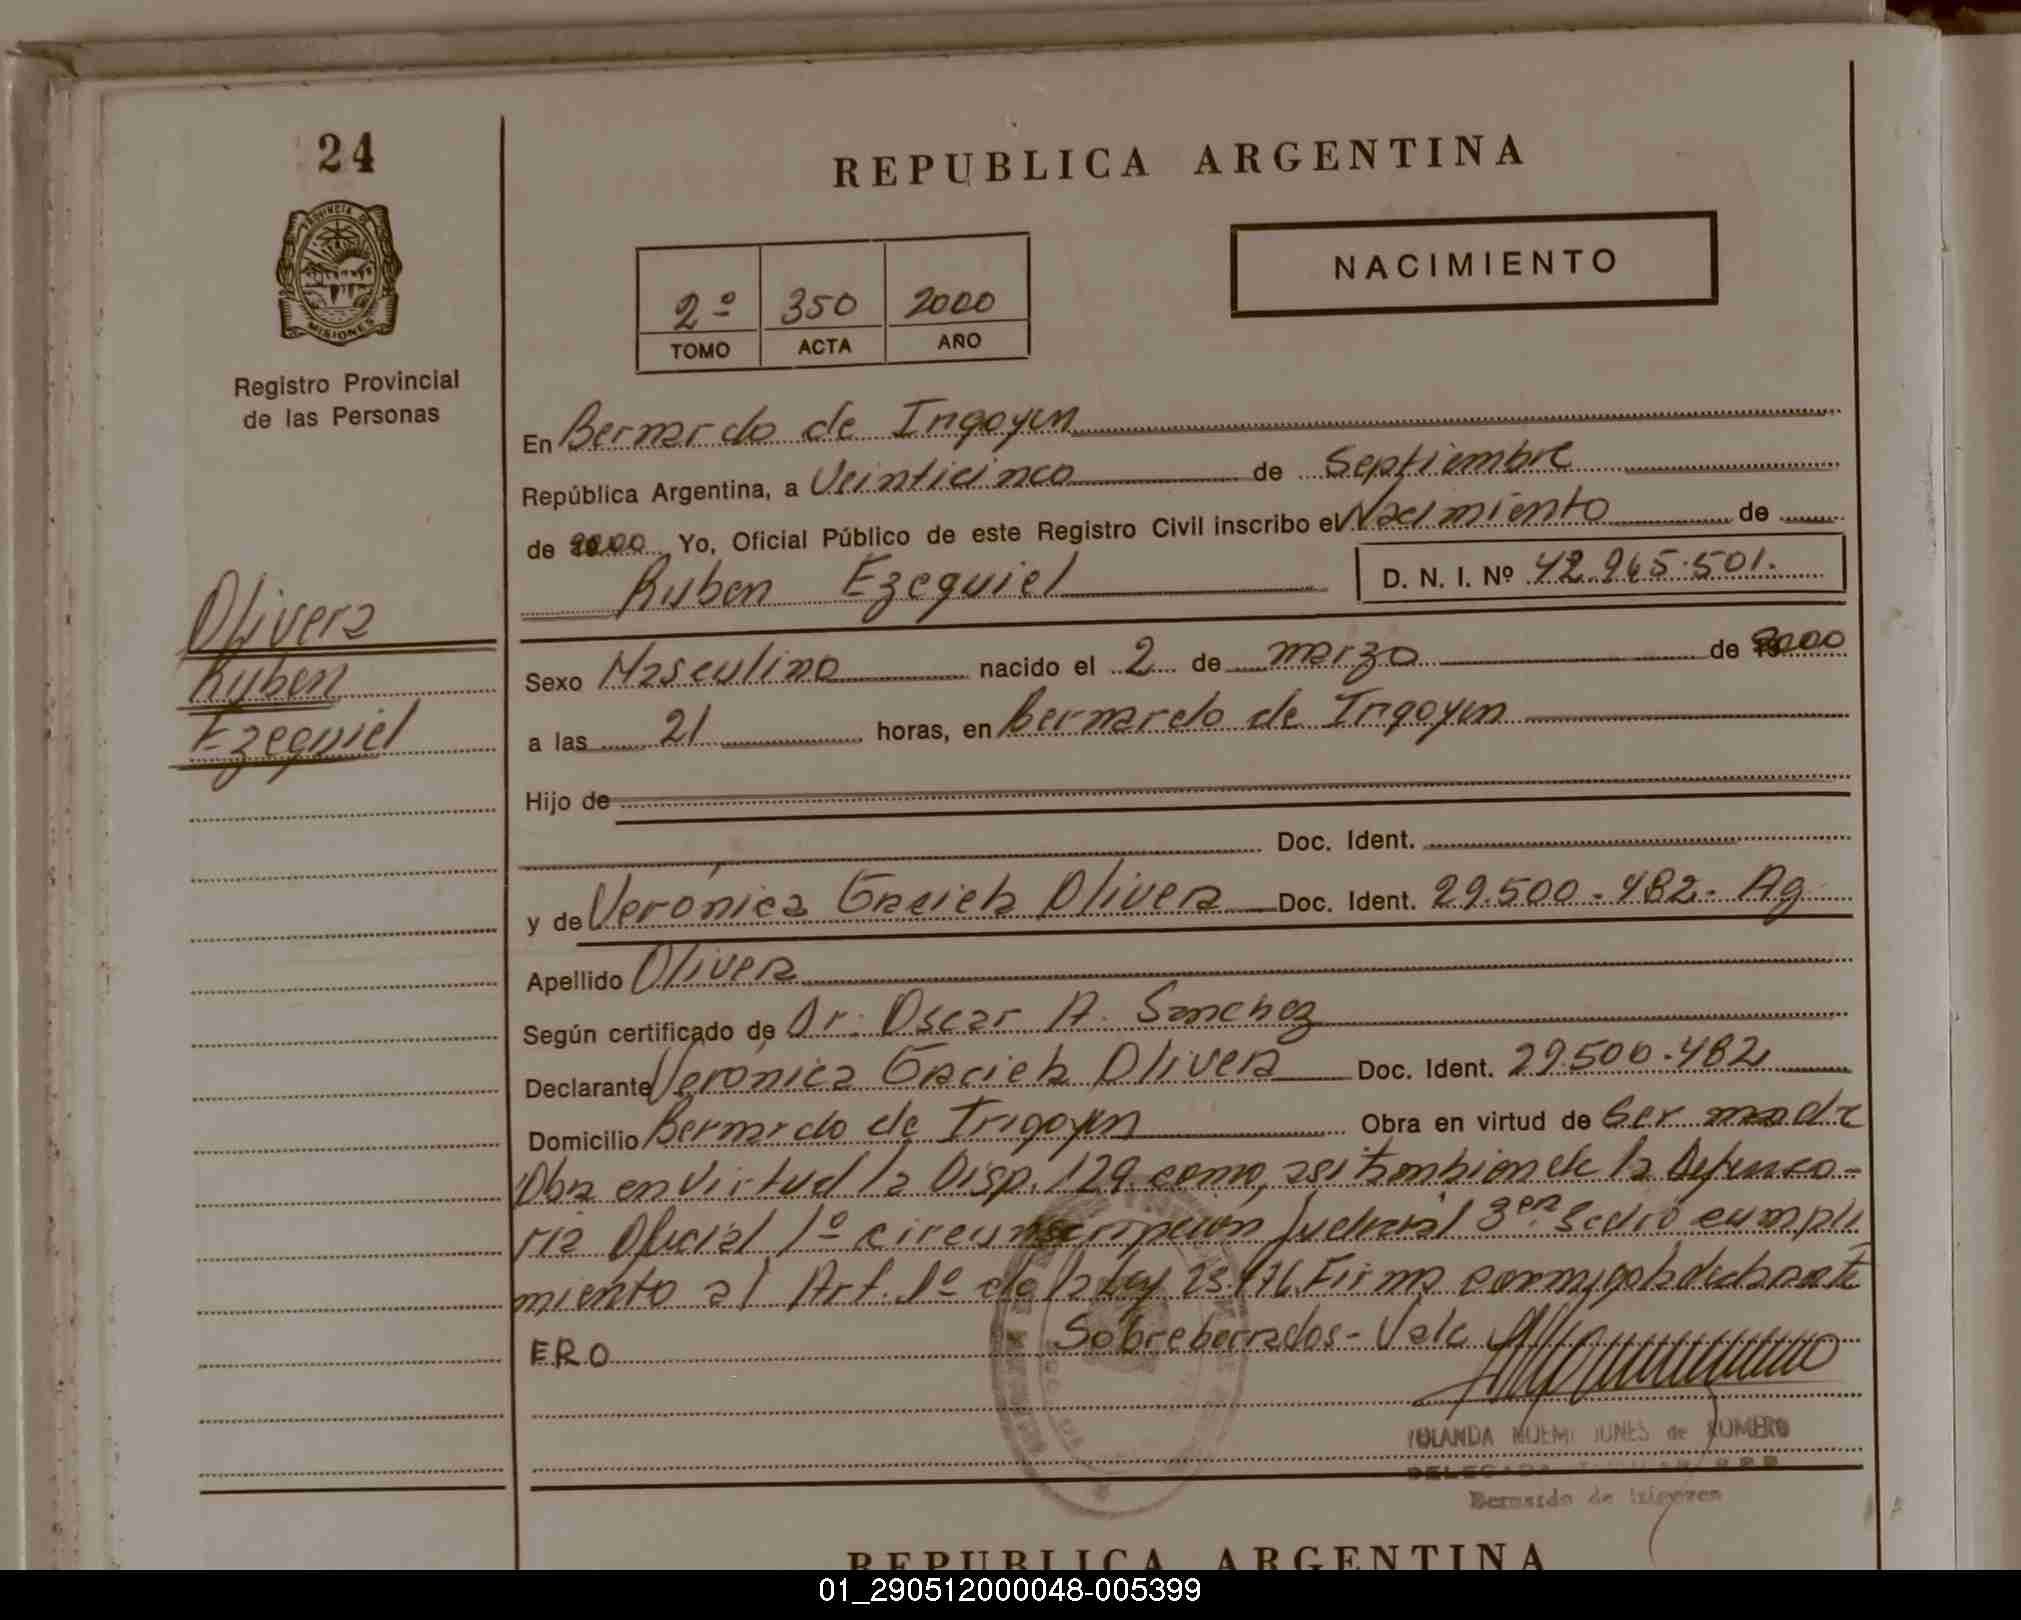 24
PROVINCIA DE
MISIONES
Registro Provincial
de las Personas
Olivera
Ruben
Ezequiel
REPUBLICA ARGENTINA
NACIMIENTO
2º 350 2000
TOMO ACTA AÑO
En Bernardo de Irigoyen
República Argentina, a Veinticinco de Septiembre
de 2000 Yo, Oficial Público de este Registro Civil inscribo el Nacimiento de
Ruben Ezequiel D. N. I. Nº 42.965.501.
Sexo Masculino nacido el 2 de marzo de 2000
a las 21 horas, en Bernardo de Irigoyen
Hijo de
Doc. Ident.
y de Verónica Graciela Olivera Doc. Ident. 29.500.482- Ag
Apellido Olivera
Según certificado de Dr. Oscar A. Sanchez
Declarante Verónica Graciela Olivera Doc. Ident. 29.500.482
Domicilio Bernardo de Irigoyen Obra en virtud de Ser madre
Obra en virtud la Disp. 129 como, asi tambien de la Defenso-
ria Oficial 1º circunscripción Judicial 3er. Se dió cumpli
miento al Art. 1º de la Ley Firma conmigo la declarante
E.R.O Sobreborrados - Vale
YOLANDA NOEMI de ROMERO
DELEGADA
Bernardo de Irigoyen
REPUBLICA ARGENTINA
01_290512000048-005399